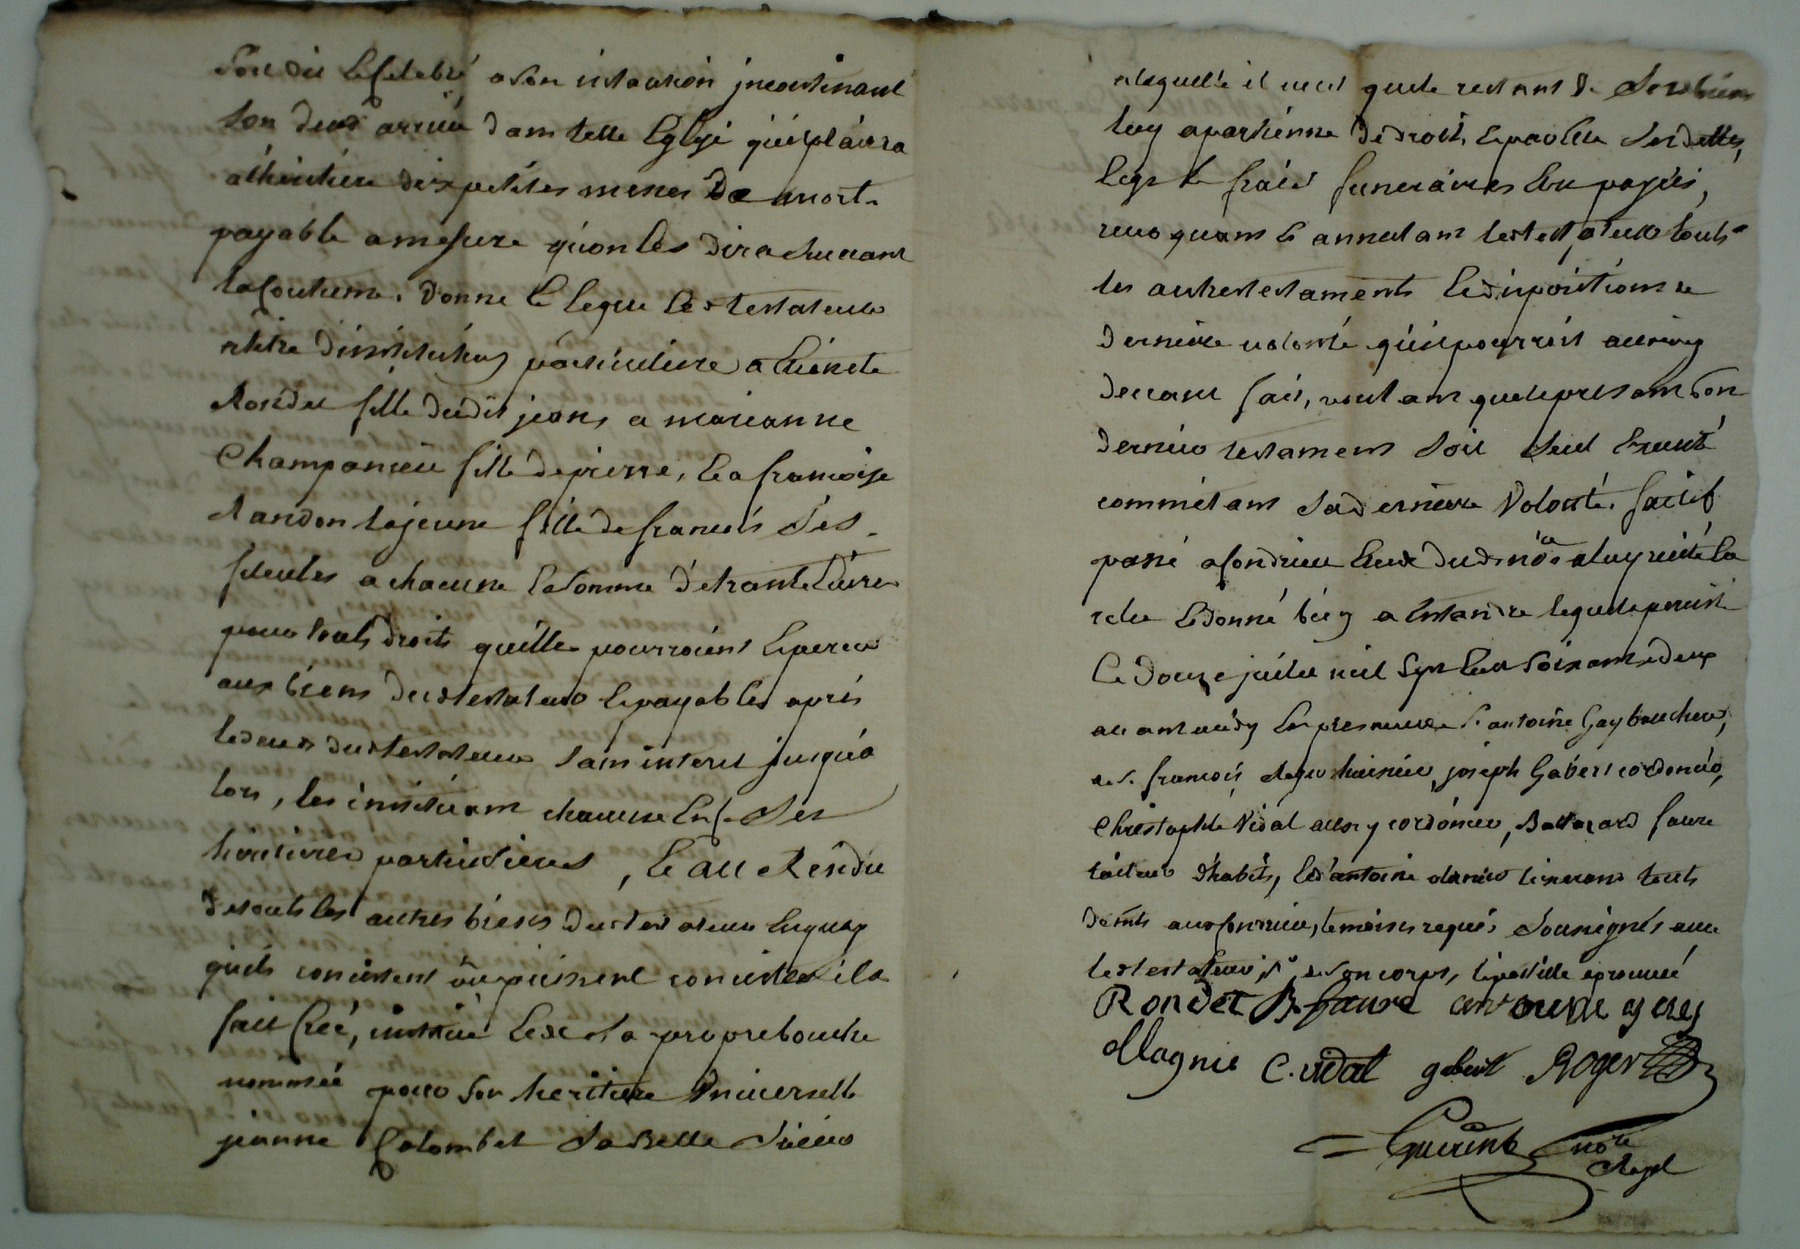 soit dit et celebré a son intantion incontinant
son deces arrivé dans telle Eglize qu'il plaira
a l'heritiere dix petites messes De mort
payable a mesure qu'on les dira suivant
la coutume. Donne et legue led testateur
a titre d'institution particuliere a
Rondet fille dudit jean, a marianne
Champanieu fille de pierre, et a francoise
Randon la jeune fille de francois ses
filleules a chacune la somme de trante Livres
pour touts droits qu'elles pourroient esperer
aux biens dud testateur et payables aprés
le deces dud testateur sans interet jusqu'a
lors, les instituant chacune En ses
heritieres particulieres, Et au Residu
de touts les autres biens dud testateur En quoy
qu'ils concistent ou puissent concister il a
fait creé, institué et de sa propre bouche
nommée pour son heritiere Universelle
jeanne Colombet sa Belle Sœur
a laquelle il veut que le restant De ses biens
luy apartienne de droit, apres ses dettes,
legs et frais funeraires Etre payés,
revoquant et annulant led testateur touts
les autres testaments et dispositions de
derniere volonté qu'il pourroit avoir cy
devant fait, voulant que le present son
dernier testament soit seul Executé
comme etant sa derniere Volonté. fait et
passé a Condrieu Etude dud no.re a luy recité Et
relu Et donné bien a Entandre lequel a persisté
Le Douze juillet mil Sept Cent Soixante deux
avant midy En presence de s.r antoine Gay boucher,
de s.r francois Roger huissier, joseph Gabert cordonier,
Christophle Vidal aussy cordonier, Baltazard faure
tailleur d'habits, Et antoine tisserand touts
dem.ts aud Condrieu, temoins requis Soussignés avec
led testateur de son corps, apostille aprouvée
Rondet B. faure antoine geres
Magnie C. vidal gabert Roger
Guerin no.re
Royal